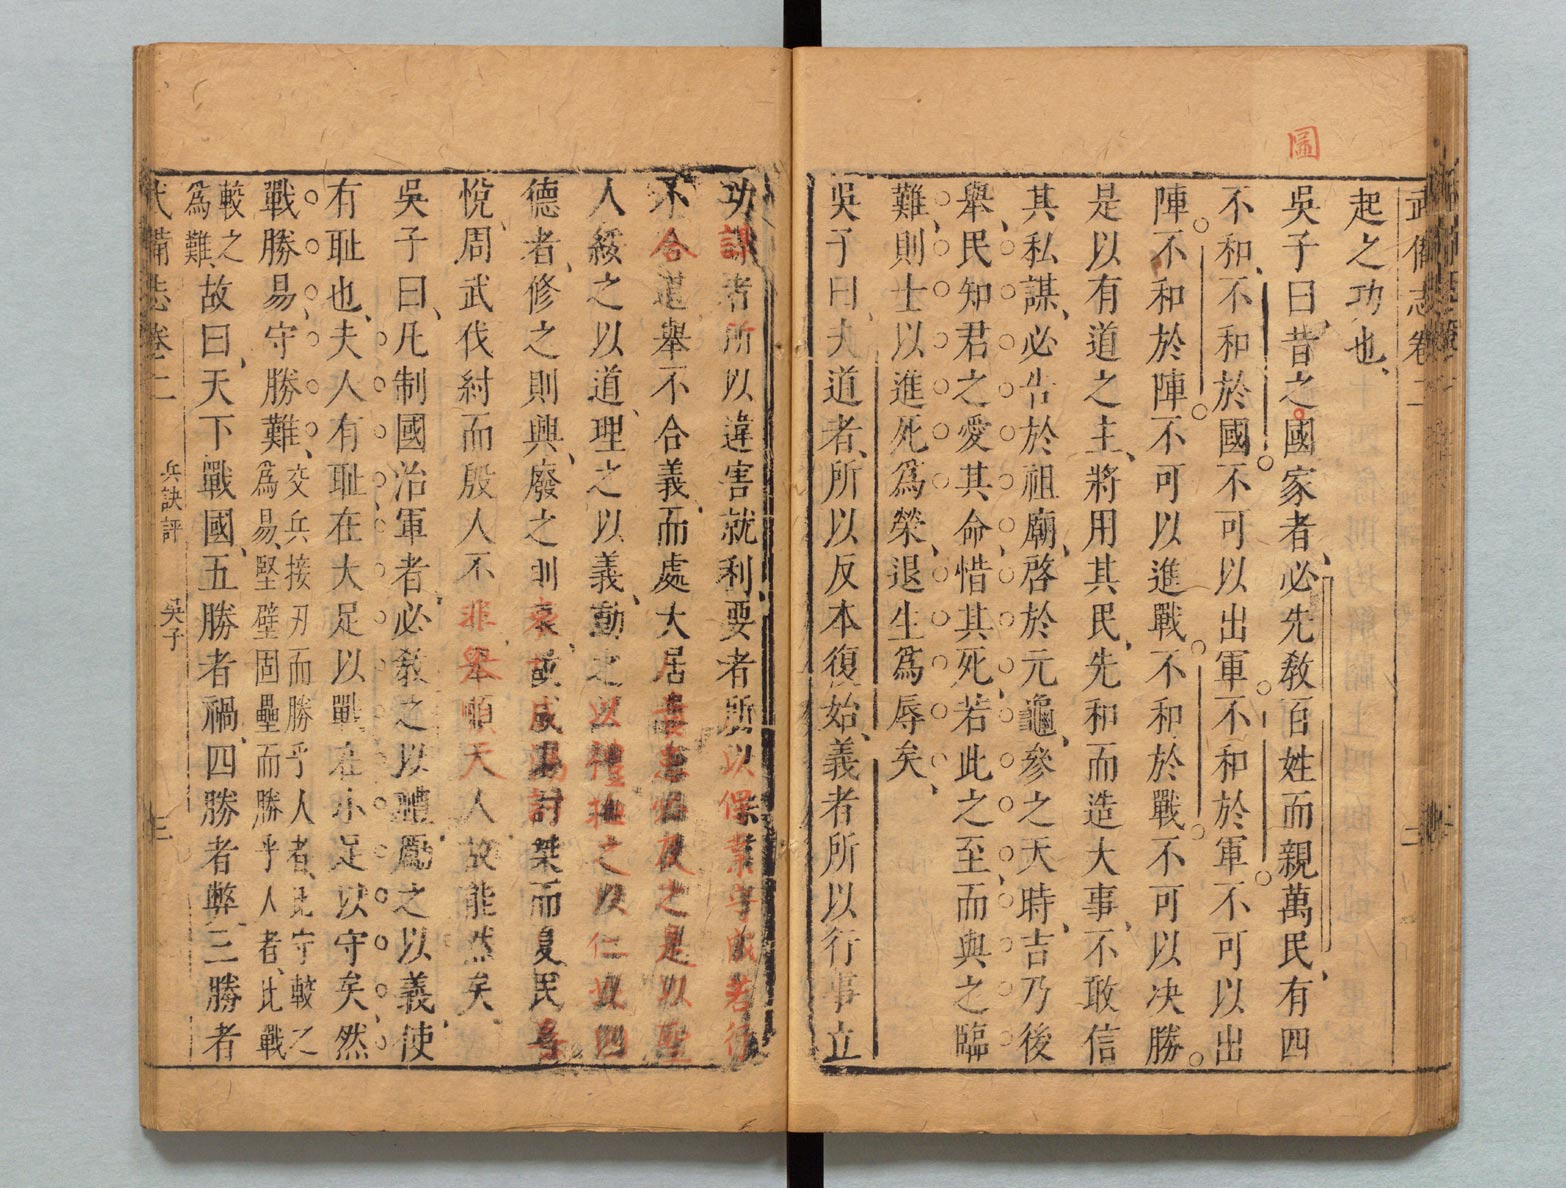 圖
武備志卷二 二
起之功也、
吳子曰、昔之國家者、必先敎百姓而親萬民、有四
不和、不和於國不可以出軍不和於軍不可以出
陣不和於陣不可以進戰不和於戰不可以決勝
是以有道之主、將用其民、先和而造大事、不敢信
其私謀、必告於祖廟、啓於元龜、參之天時、吉乃後
舉、民知君之愛其命惜其死若此之至、而與之臨
難、則士以進死爲榮、退生爲辱矣、
吳子曰、夫道者、所以反本復始、義者所以行事立
功謀者所以違害就利、要者所以保業守成若行
不合道舉不合義、而處大居
人綏之以道、理之以義、動之以禮撫之以仁此四
德者、修之則興、廢之則衰、故成湯討桀而夏民喜
悅、周武伐紂而殷人不非舉順天人故能然矣、
吳子曰、凡制國治軍者、必敎之以禮、勵之以義、使
有耻也、夫人有耻、在大足以戰在小足以守矣、然
戰勝易、守勝難、交兵接刃而勝乎人者、比守較之
爲易、堅壁固壘而勝乎人者、比戰
較之
爲難、故曰、天下戰國、五勝者禍、四勝者弊、三勝者
武備志卷二 兵訣評 吳子 三